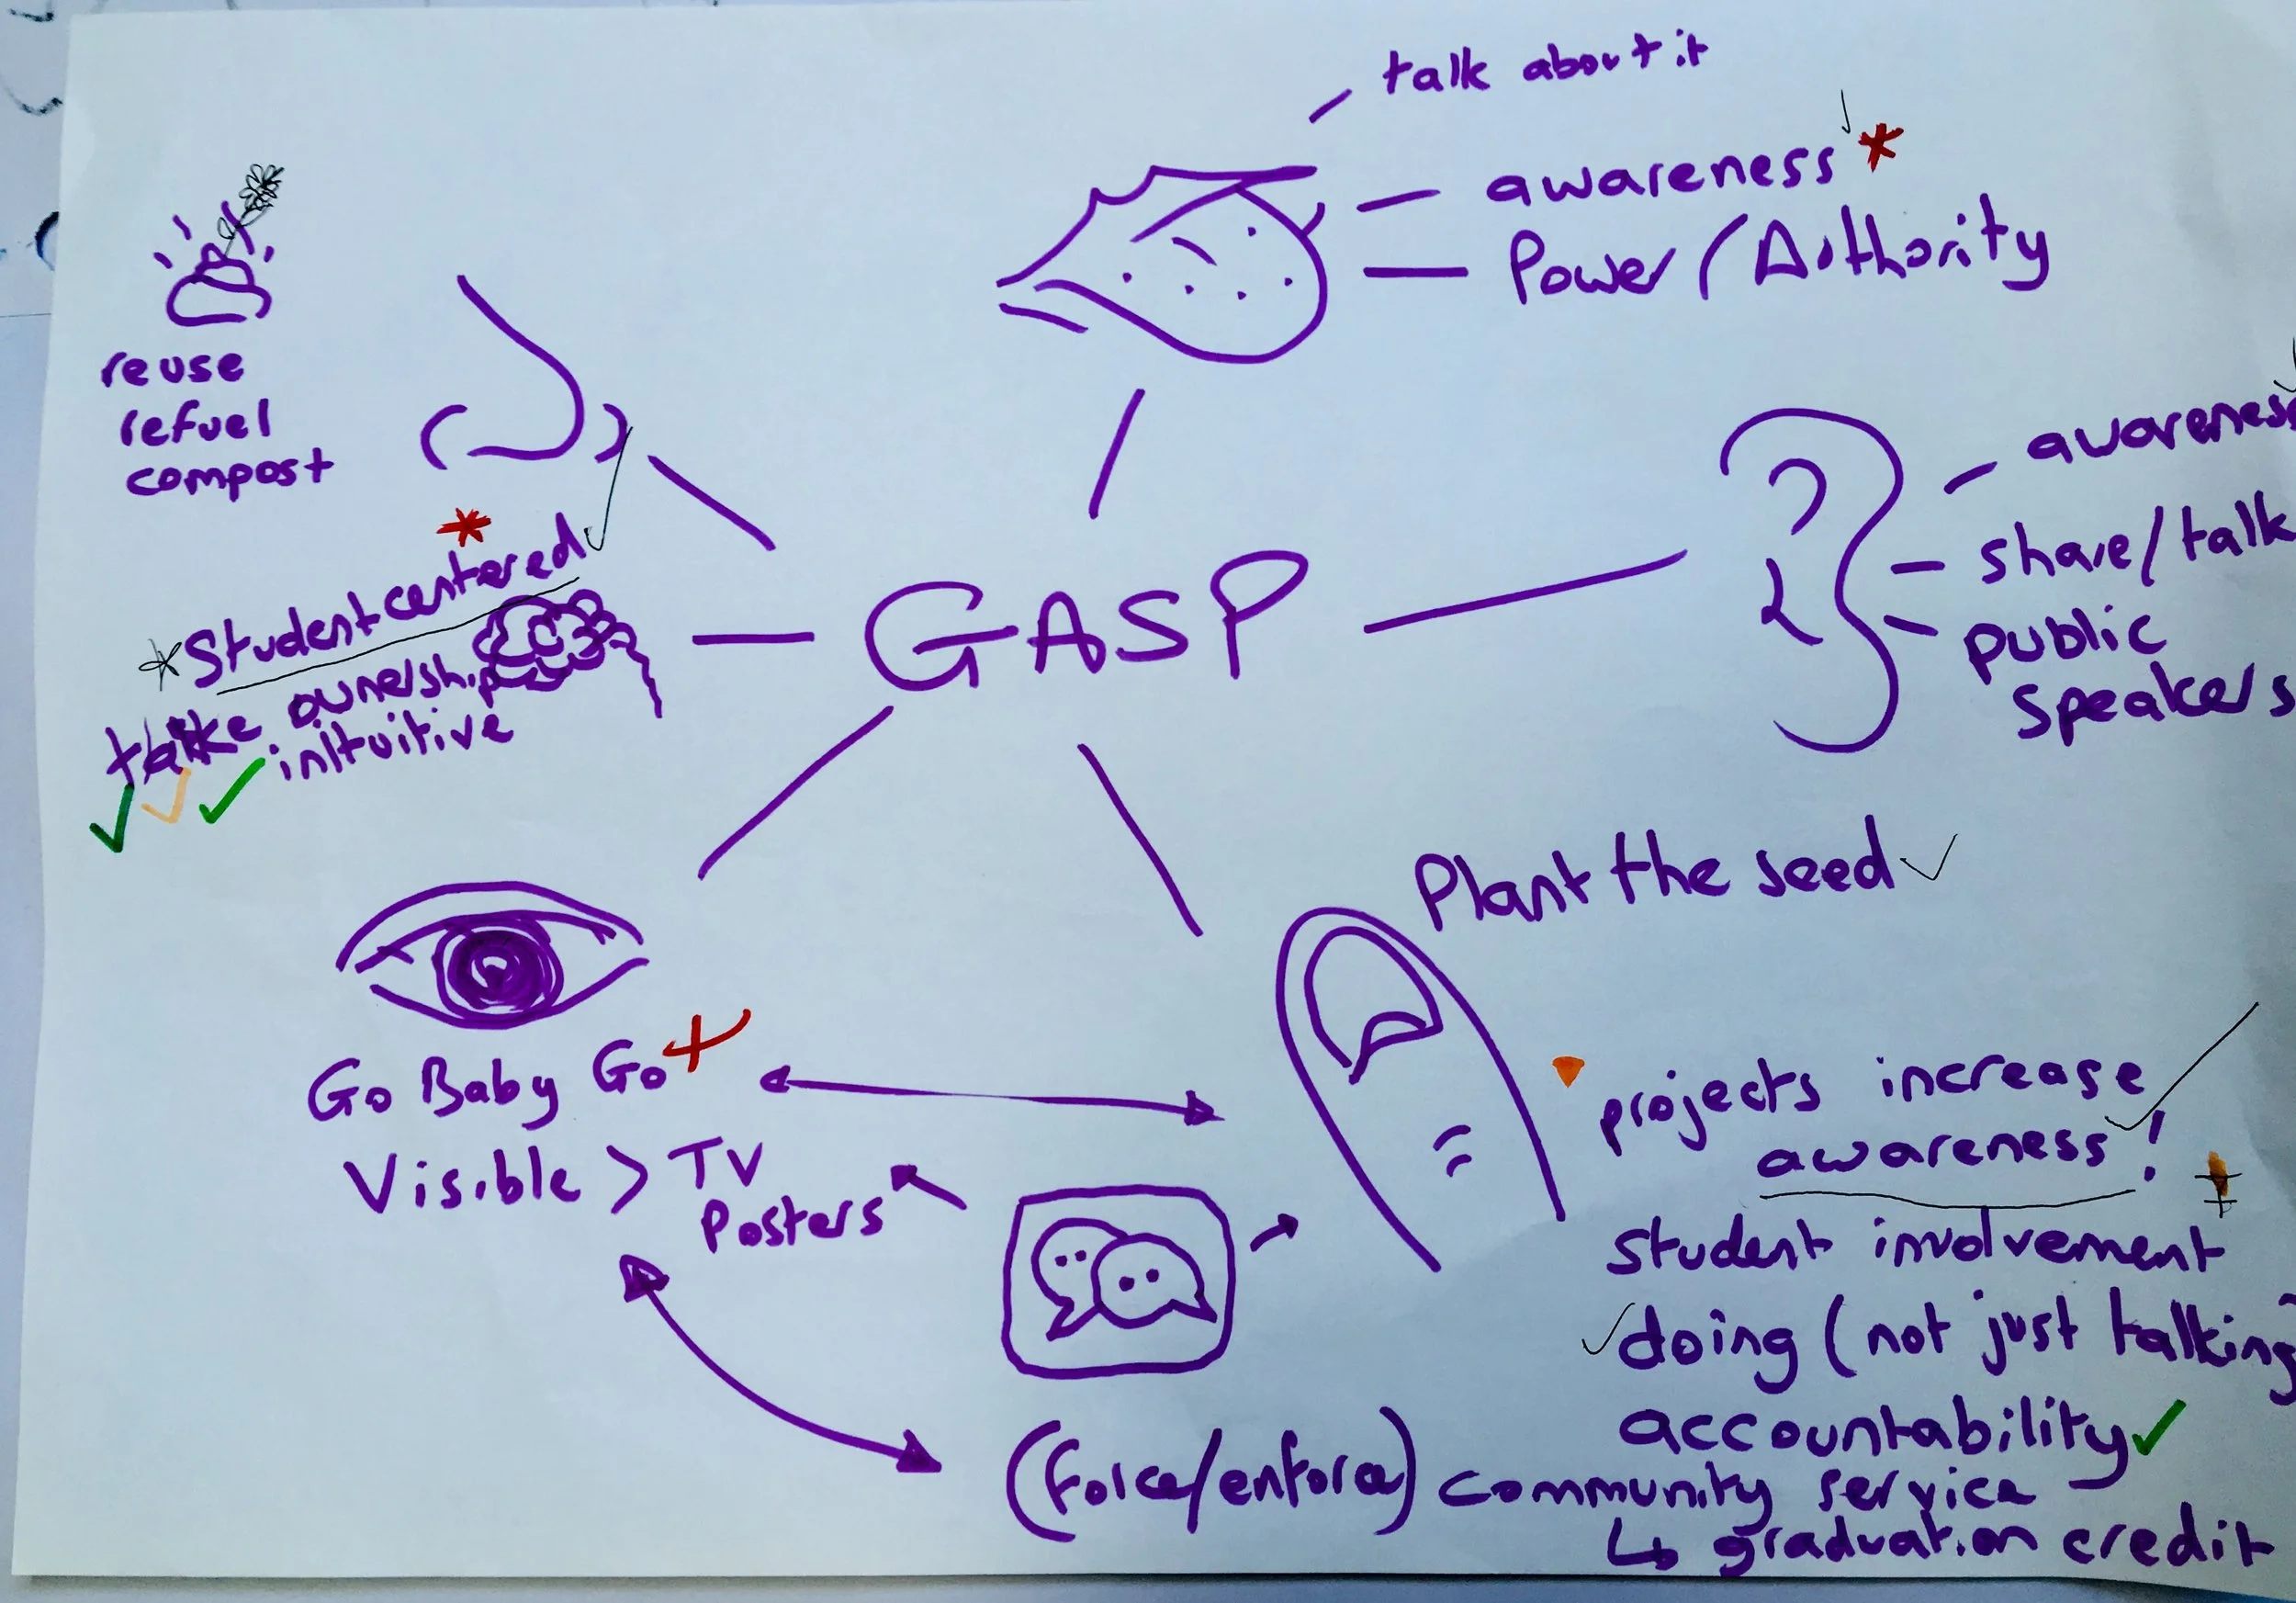 talk about it
awareness
Power / Authority
reuse
refuel
compost
Student centered
take ownership
inituitive
GASP
awareness
share / talk
public
speakers
Plant the seed
Go Baby Go
Visible > TV
Posters
projects increase
awareness!
student involvement
doing (not just talking
accountability
(force/enforce) community service
↳ graduation credit